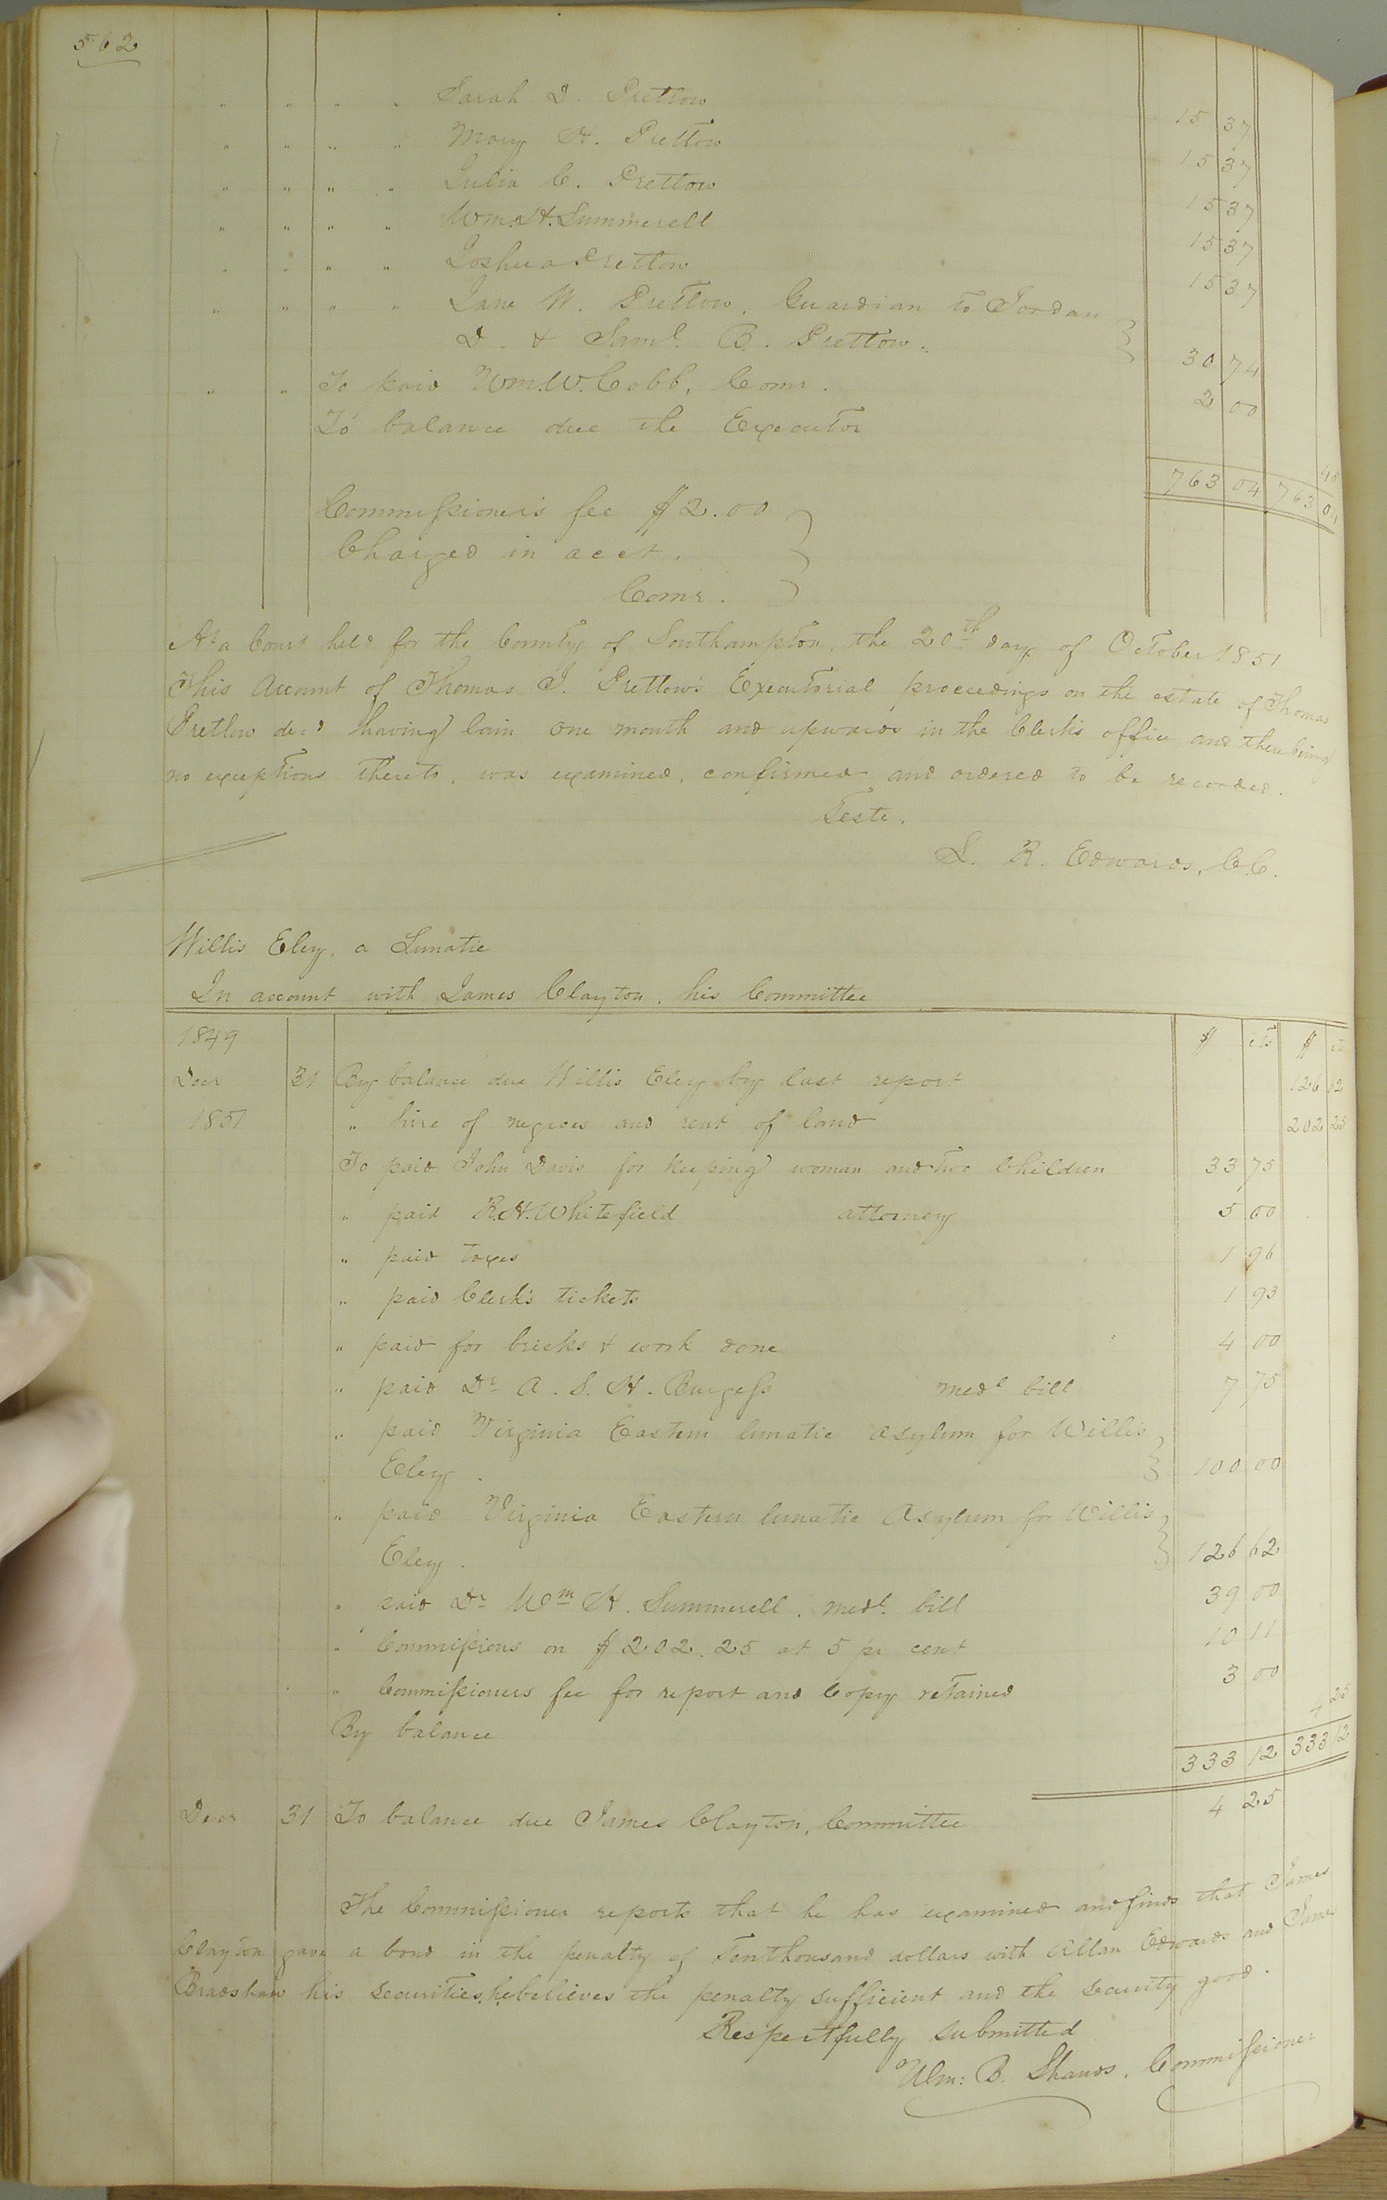 562
" " " " Sarah D. Pretlow 15 37
" " " " Mary H. Pretlow 15 37
" " " " Julia C. Pretlow 15 37
" " " " Wm. H. Summerell 15 37
" " " " Joshua Pretlow 15 37
" " " " Jane W. Pretlow, Guardian to Jordan
D. & Saml. B. Pretlow. 30 74
" " To paid Wm. W. Cobb, Comr. 2 00
To balance due the Executor
763 04 763 04
Commissioner's fee $2.00
Charged in acct.
Comr.
At a Court held for the County of Southampton, the 20th day of October 1851
This Account of Thomas J. Pretlow's Executorial proceedings on the estate of Thomas
Pretlow decd having lain one month and upwards in the Clerk's office and there being
no exceptions thereto, was examined, confirmed and ordered to be recorded.
Teste.
L. R. Edwards, C.C.
Willis Eley, a Lunatic
In account with James Clayton, his Committee
1849 $ cts $ cts
Decr 31 By balance due Willis Eley by last report 126 62
1851 " hire of negroes and rent of land 202 25
To paid John Davis for keeping woman and two children 33 75
" paid R. H. Whitefield attorney 5 00
" paid taxes 1 96
" paid Clerk's tickets 1 93
" paid for bricks & work done 4 00
" paid Dr. A. S. H. Burgess medl bill 7 75
" paid Virginia Eastern lunatic asylum for Willis
Eley. 100 00
" paid Virginia Eastern lunatic Asylum for Willis
Eley. 126 62
" paid Dr. Wm H. Summerell, medl. bill 39 00
" Commissions on $202.25 at 5 pr cent 10 11
" Commissioners fee for report and Copy retained 3 00
By balance 4 25
333 12 333 12
Decr 31 To balance due James Clayton, Committee 4 25
The Commissioner reports that he has examined and finds that James
Clayton gave a bond in the penalty of Ten thousand dollars with Allan Edwards and James
Bradshaw his securities, he believes the penalty sufficient and the security good.
Respectfully submitted
Wm: B. Shands, Commissioner